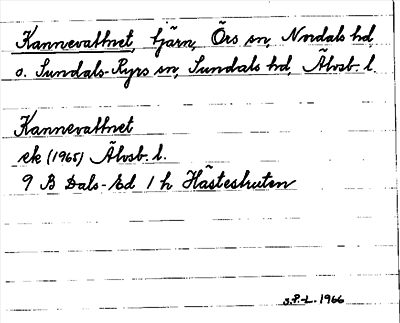 Kannevattnet, tjärn, Örs sn, Nordals hd,
o. Sundals-Ryrs sn, Sundals hd, Älvsb. l.
Kannevattnet
ek (1965) Älvsb. l.
9 B Dals-Ed 1 h Hästeshuten
S.P.-L. 1966